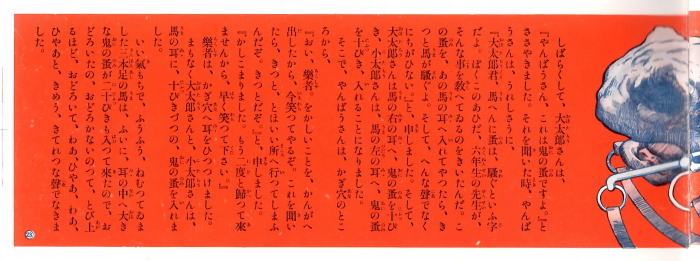 しばらくして、大太郎さんは、
『やんぼうさん、これは鬼の蚤ですよ。』と
ささやきました。それを聞いた時、やんぼ
うさんは、うれしさうに、
『大太郎君、馬へんに蚤は、騒ぐといふ字
だよ。ぼくこのあひだ、六年生の先生が、
そんな事を教へてゐるのをきいたんだ。こ
の蚤を、あの馬の耳へ入れてやつたら、き
つと馬が騒ぐよ。そして、へんな聲でなく
にちがひない。』と、申しました。そして、
大太郎さんは馬の右の耳へ、鬼の蚤を十ぴ
き、小太郎さんは、馬の左の耳へ、鬼の蚤
を十ぴき、入れることになりました。
そこで、やんぼうさんは、かぎ穴のとこ
ろから、
『おい、樂者。をかしいことを、かんがへ
出したから、今笑つてやるぞ。これを聞い
たら、きつと、とほい所へ行つてしまふ
んだぞ。きつとだぞ。』と、申しました。
『かしこまりました。もう二度と歸つて來
ませんから、早く笑つて下さい。』
樂者は、かぎ穴へ耳をひつつけました。
まもなく大太郎さんと、小太郎さんは、
馬の耳に、十ぴきづつの、鬼の蚤を入れま
した。
いい氣もちで、ふうふう、ねむつてゐま
した三本足の馬は、ふいに、耳の中へ大き
な鬼の蚤が二十ぴきも入つて來たので、お
どろいたの、おどろかないのつて、とび上
るほど、おどろいて、わあ、ひやあ、わあ、
ひやあと、きめう、きてれつな聲でなきま
した。
㉘